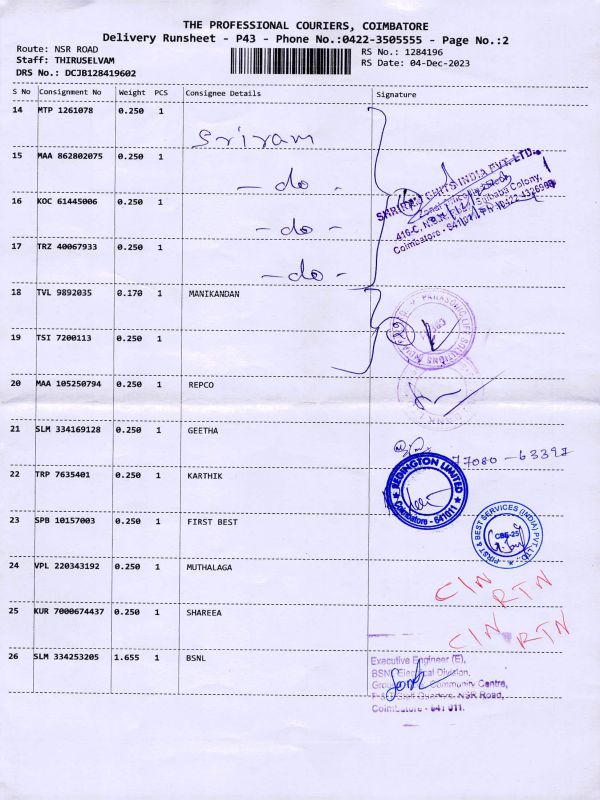 THE PROFESSIONAL COURIERS, COIMBATORE
Delivery Runsheet - P43 - Phone No.:0422-3505555 - Page No.:2
Route: NSR ROAD
Staff: THIRUSELVAM
DRS No.: DCJB128419602
RS No.: 1284196
RS Date: 04-Dec-2023
S No Consignment No Weight PCS Consignee Details Signature
14 MTP 1261078 0.250 1
Sriram
15 MAA 862802075 0.250 1
- do -
16 KOC 61445006 0.250 1
- do -
17 TRZ 40067933 0.250 1
- do -
SHRIRAM CHITS INDIA PVT. LTD.,
416-C, N.S.R. Saibaba Colony,
Coimbatore - 641011
18 TVL 9892035 0.170 1 MANIKANDAN
PANASONIC LIFE SOLUTIONS
19 TSI 7200113 0.250 1
20 MAA 105250794 0.250 1 REPCO
21 SLM 334169128 0.250 1 GEETHA
77080 - 63397
22 TRP 7635401 0.250 1 KARTHIK
REDINGTON LIMITED
Coimbatore - 641011
23 SPB 10157003 0.250 1 FIRST BEST
FIRST & BEST SERVICES (INDIA) PVT. LTD.
CBE-25
24 VPL 220343192 0.250 1 MUTHALAGA
CIN RTN
25 KUR 7000674437 0.250 1 SHAREEA
CIN RTN
26 SLM 334253205 1.655 1 BSNL
Executive Engineer (E),
BSNL Electrical Division,
Community Centre,
NSR Road,
Coimbatore - 641 011.